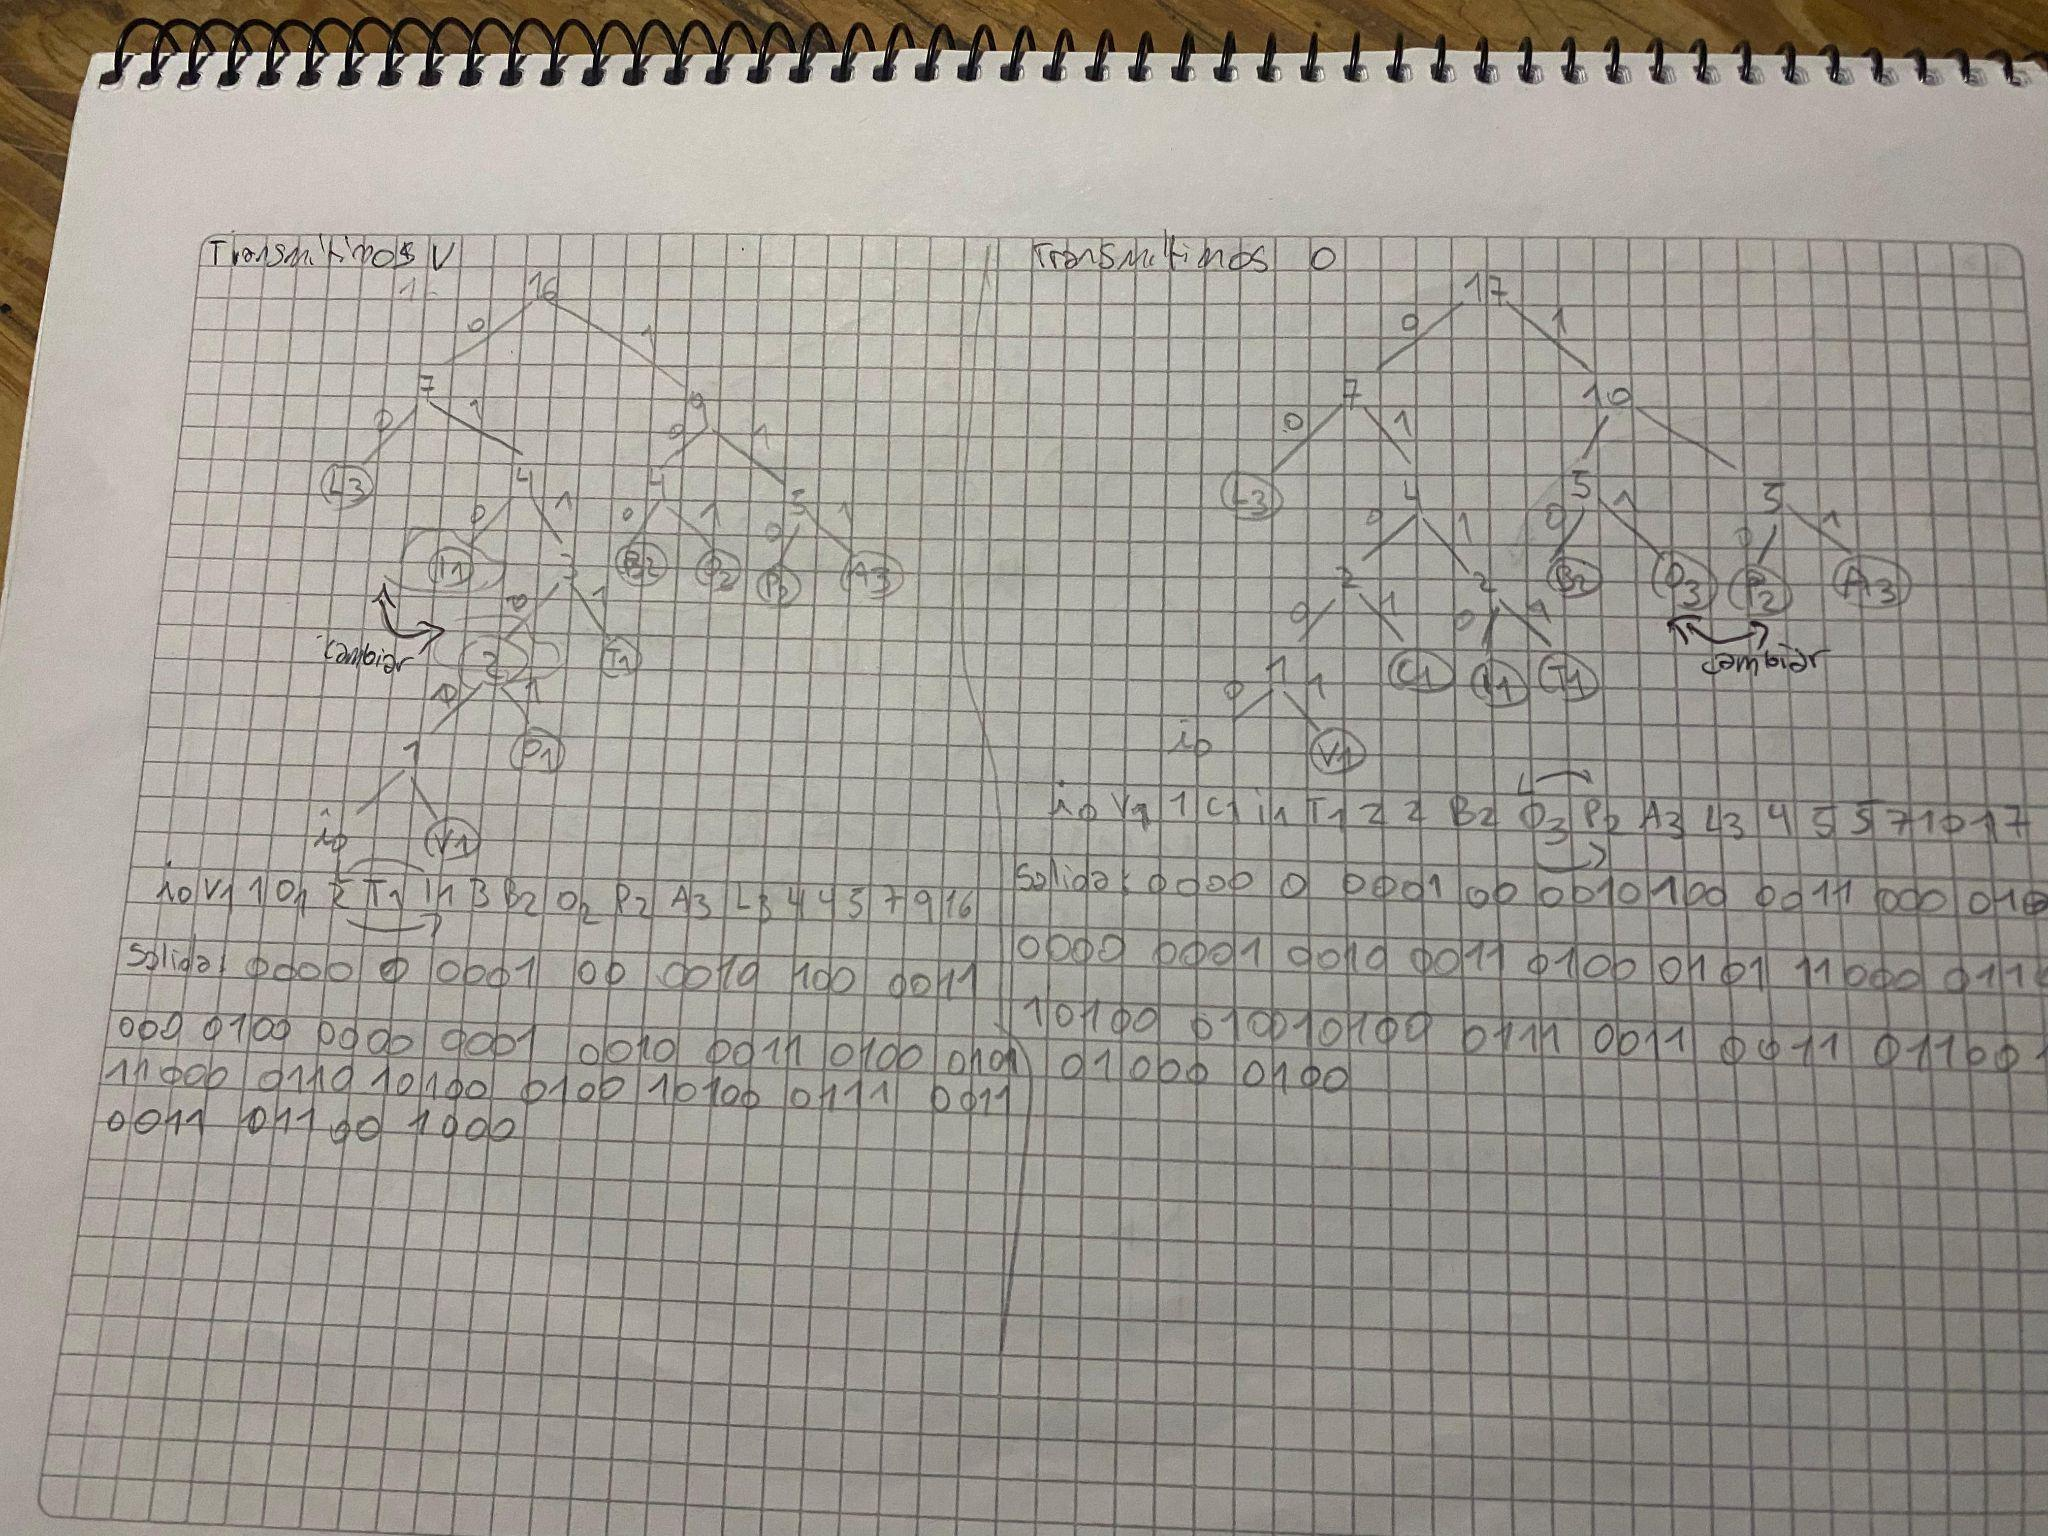 Transmitimos V
16
0 1
7 9
0 1 0 1
L3 4 4 5
0 1 0 1 0 1
I1 3 B2 O2 P2 A3
cambiar
0 1
2 T1
0 1
1 O1
io V1
io V1 1 O1 2 T1 I1 3 B2 O2 P2 A3 L3 4 4 5 7 9 16
Salida: 0000 0 0001 00 0010 100 0011
000 0100 0000 0001 0010 0011 0100 0101
11000 0110 10100 0100 10100 0111 0011
0011 011 00 1000
Transmitimos O
17
0 1
7 10
0 1
L3 4 5 5
0 1 0 1 0 1
2 2 B2 O3 P2 A3
cambiar
0 1 0 1
1 C1 I1 T1
0 1
io V1
io V1 1 C1 i1 T1 2 2 B2 O3 P2 A3 L3 4 5 5 7 10 17
Salida: 0000 0 0001 00 0010 100 0011 000 0100
0000 0001 0010 0011 0100 0101 11000
10100 010010100 0111 0011 0011
01000 0100